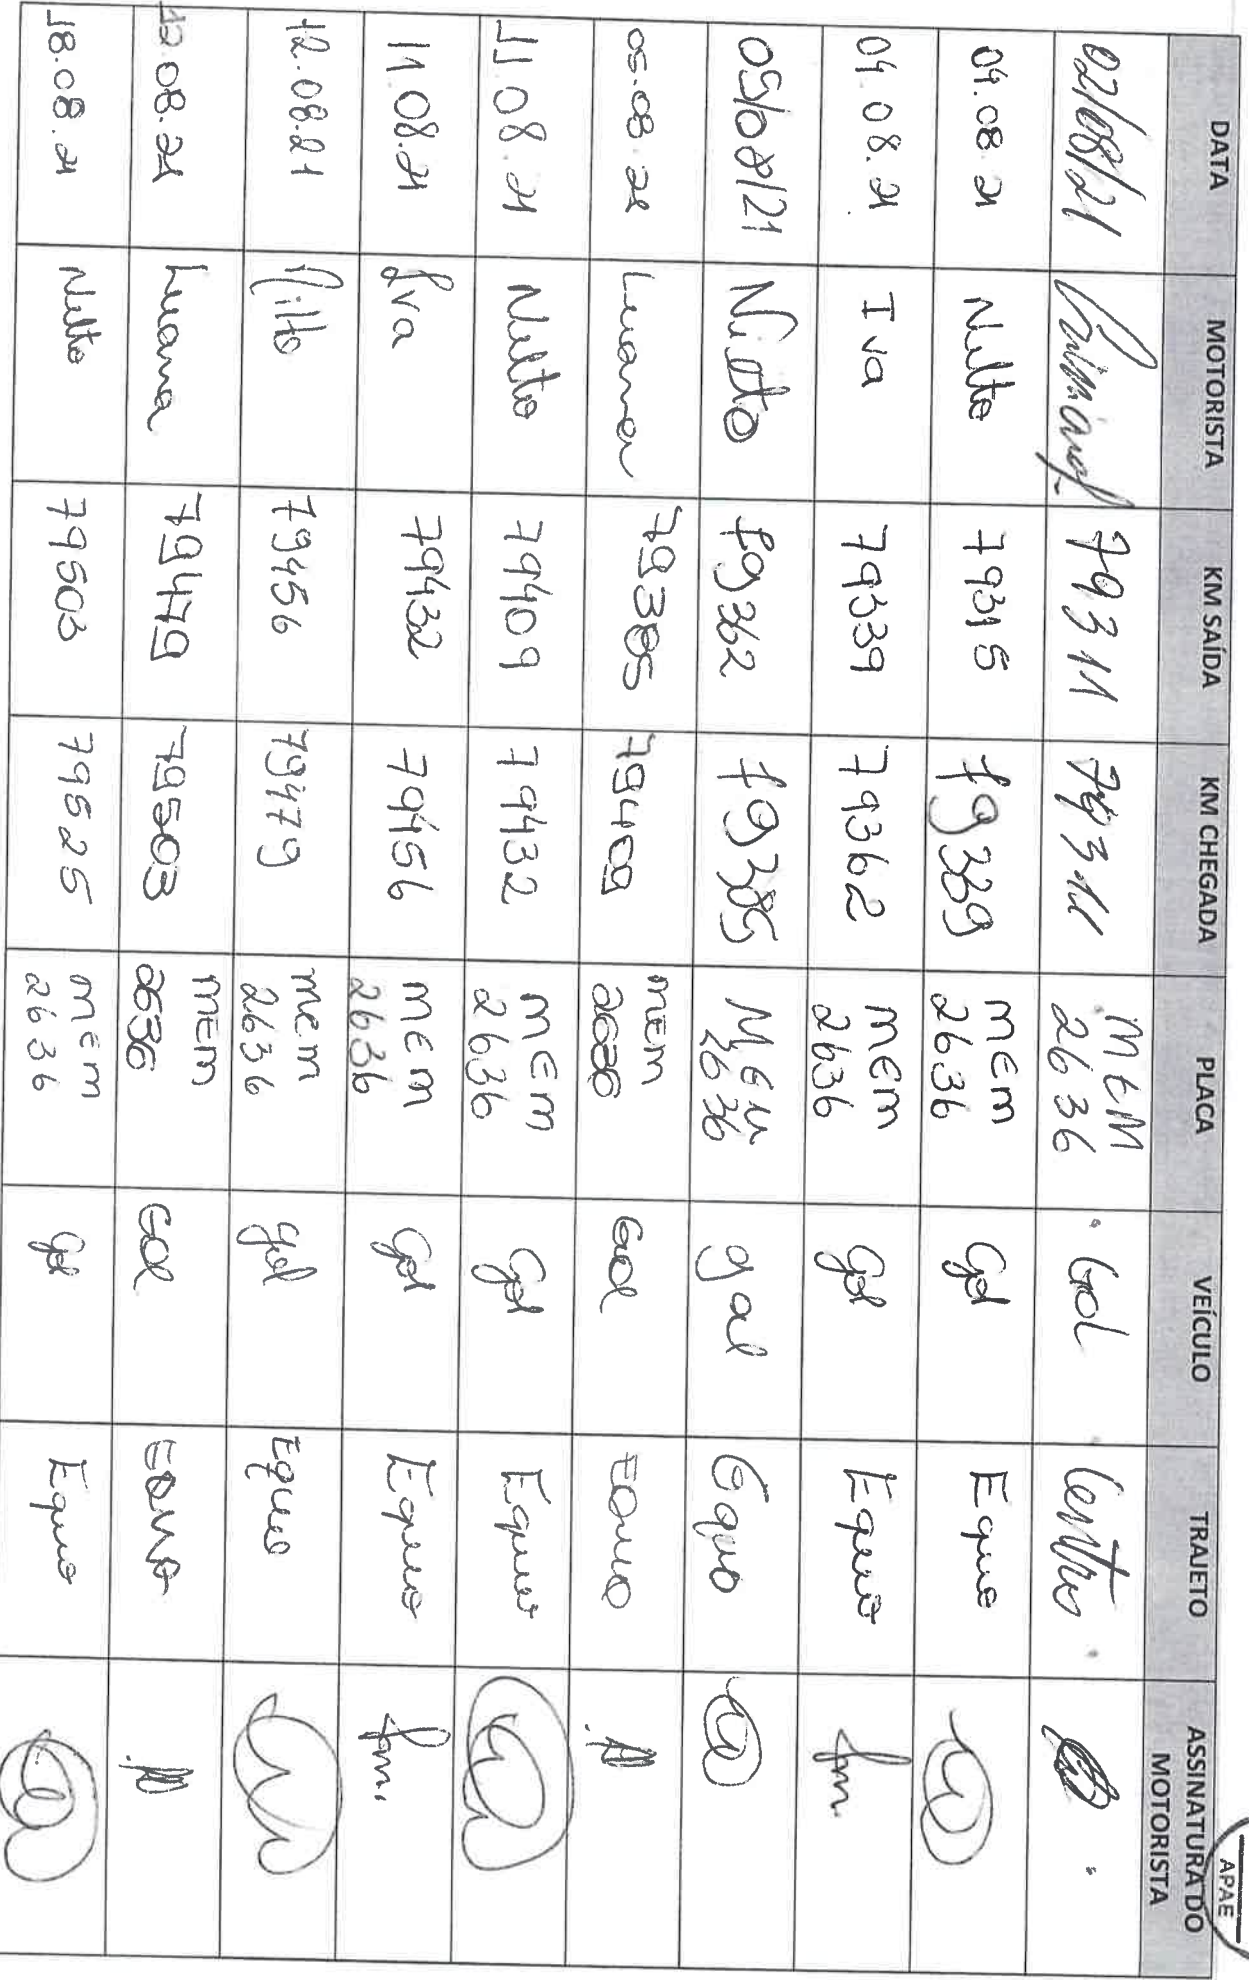 APAE
DATA MOTORISTA KM SAÍDA KM CHEGADA PLACA VEÍCULO TRAJETO ASSINATURA DO MOTORISTA
02/08/21 79311 79311 MEM 2636 Gol Centro
04.08.21 Nilto 79315 79339 MEM 2636 Gol Equo
04.08.21 Iva 79339 79362 MEM 2636 Gol Equo
05/08/21 Nilto 79362 79385 MEM 2636 gol Equo
05.08.21 Luana 79385 79409 MEM 2636 Gol EQUO
11.08.21 Nilto 79409 79432 MEM 2636 Gol Equo
11.08.21 Iva 79432 79456 MEM 2636 Gol Equo
12.08.21 Nilto 79456 79479 MEM 2636 gol Equo
12.08.21 Luana 79479 79503 MEM 2636 GOL EQUO
18.08.21 Nilto 79503 79525 MEM 2636 Gol Equo